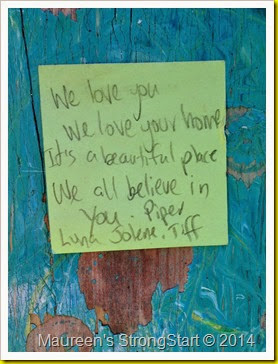 We love you
We love your home
It's a beautiful place
We all believe in
you. Piper
Luna Jolene. Tiff
Maureen's StrongStart © 2014